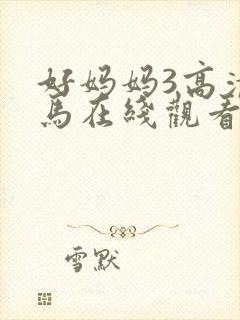 好妈妈3高清
馬在綫觀看
雪默